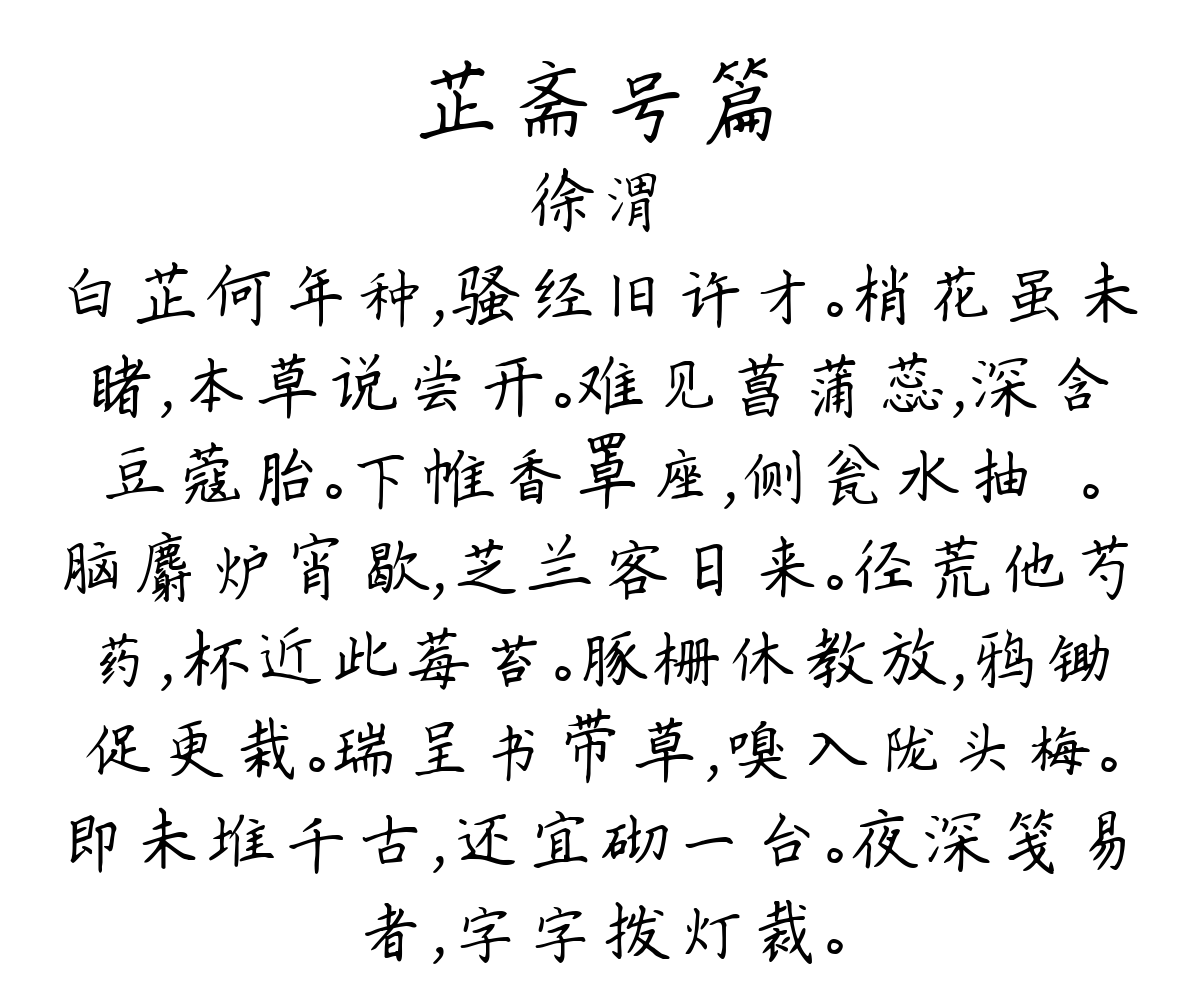 芷斋号篇
徐渭
白芷何年种,骚经旧许才。梢花虽未
睹,本草说尝开。难见菖蒲蕊,深含
豆蔻胎。下帷香罩座,侧瓮水抽 。
脑麝炉宵歇,芝兰客日来。径荒他芍
药,杯近此莓苔。豚栅休教放,鸦锄
促更栽。瑞呈书带草,嗅入陇头梅。
即未堆千古,还宜砌一台。夜深笺易
者,字字拨灯裁。